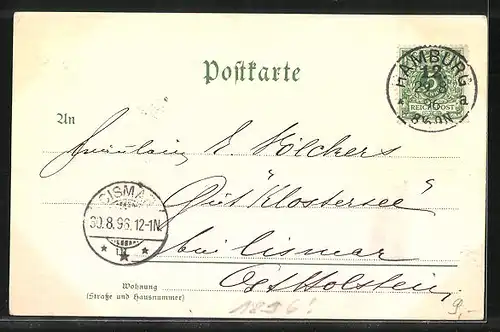 Postkarte
HAMBURG
12
29.8
96
8-9N
a
REICHSPOST
An
Fräulein E. Völckers
Gut "Klostersee"
bei Cismar
Ostholstein
CISMAR
30.8.96.12-1N
Wohnung
(Straße und Hausnummer)
1896!
9,-